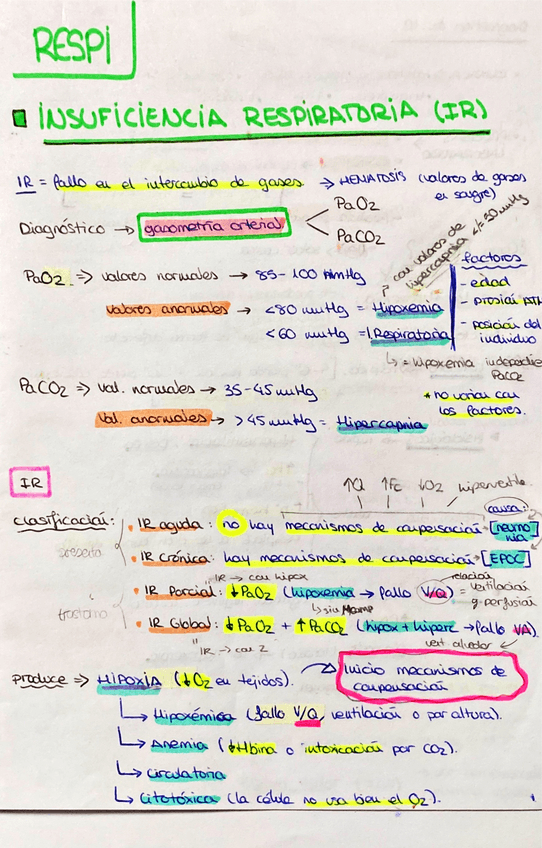 RESPI
INSUFICIENCIA RESPIRATORIA (IR)
IR = fallo en el intercambio de gases → HEMATOSIS (valores de gases en sangre)
Diagnóstico → gasometría arterial < PaO2
PaCO2
con valores de hipercapnia
PaO2 ⇒ valores normales → 85-100 mmHg
valores anormales → <80 mmHg = Hipoxemia
<60 mmHg = I Respiratoria
↳ = hipoxemia independiente PaCO2
factores
- edad
- presión ATM
- posición del individuo
* no varían con los factores.
PaCO2 ⇒ val. normales → 35-45 mmHg
Val. anormales → >45 mmHg = Hipercapnia
IR
↑Q ↑Fc ↓O2 hiperventila.
Clasificación:
presenta
IR aguda: no hay mecanismos de compensación
causa:
[neumonía]
IR Crónica: hay mecanismos de compensación → [EPOC]
trastorno
IR → con hipox
IR Parcial: ↓PaO2 (hipoxemia → fallo V/Q) =
relación ventilación y perfusión
↳ sin
IR Global: ↓PaO2 + ↑PaCO2 (hipox + hiperc → fallo VA)
IR → con 2
vent alveolar
produce ⇒ HIPOXIA (↓O2 en tejidos). → Inicio mecanismos de compensación
↳ Hipoxémica (fallo V/Q ventilación o por altura).
↳ Anemia (↓Hbina o intoxicación por CO2).
↳ Circulatoria
↳ Citotóxica (la célula no usa bien el O2).